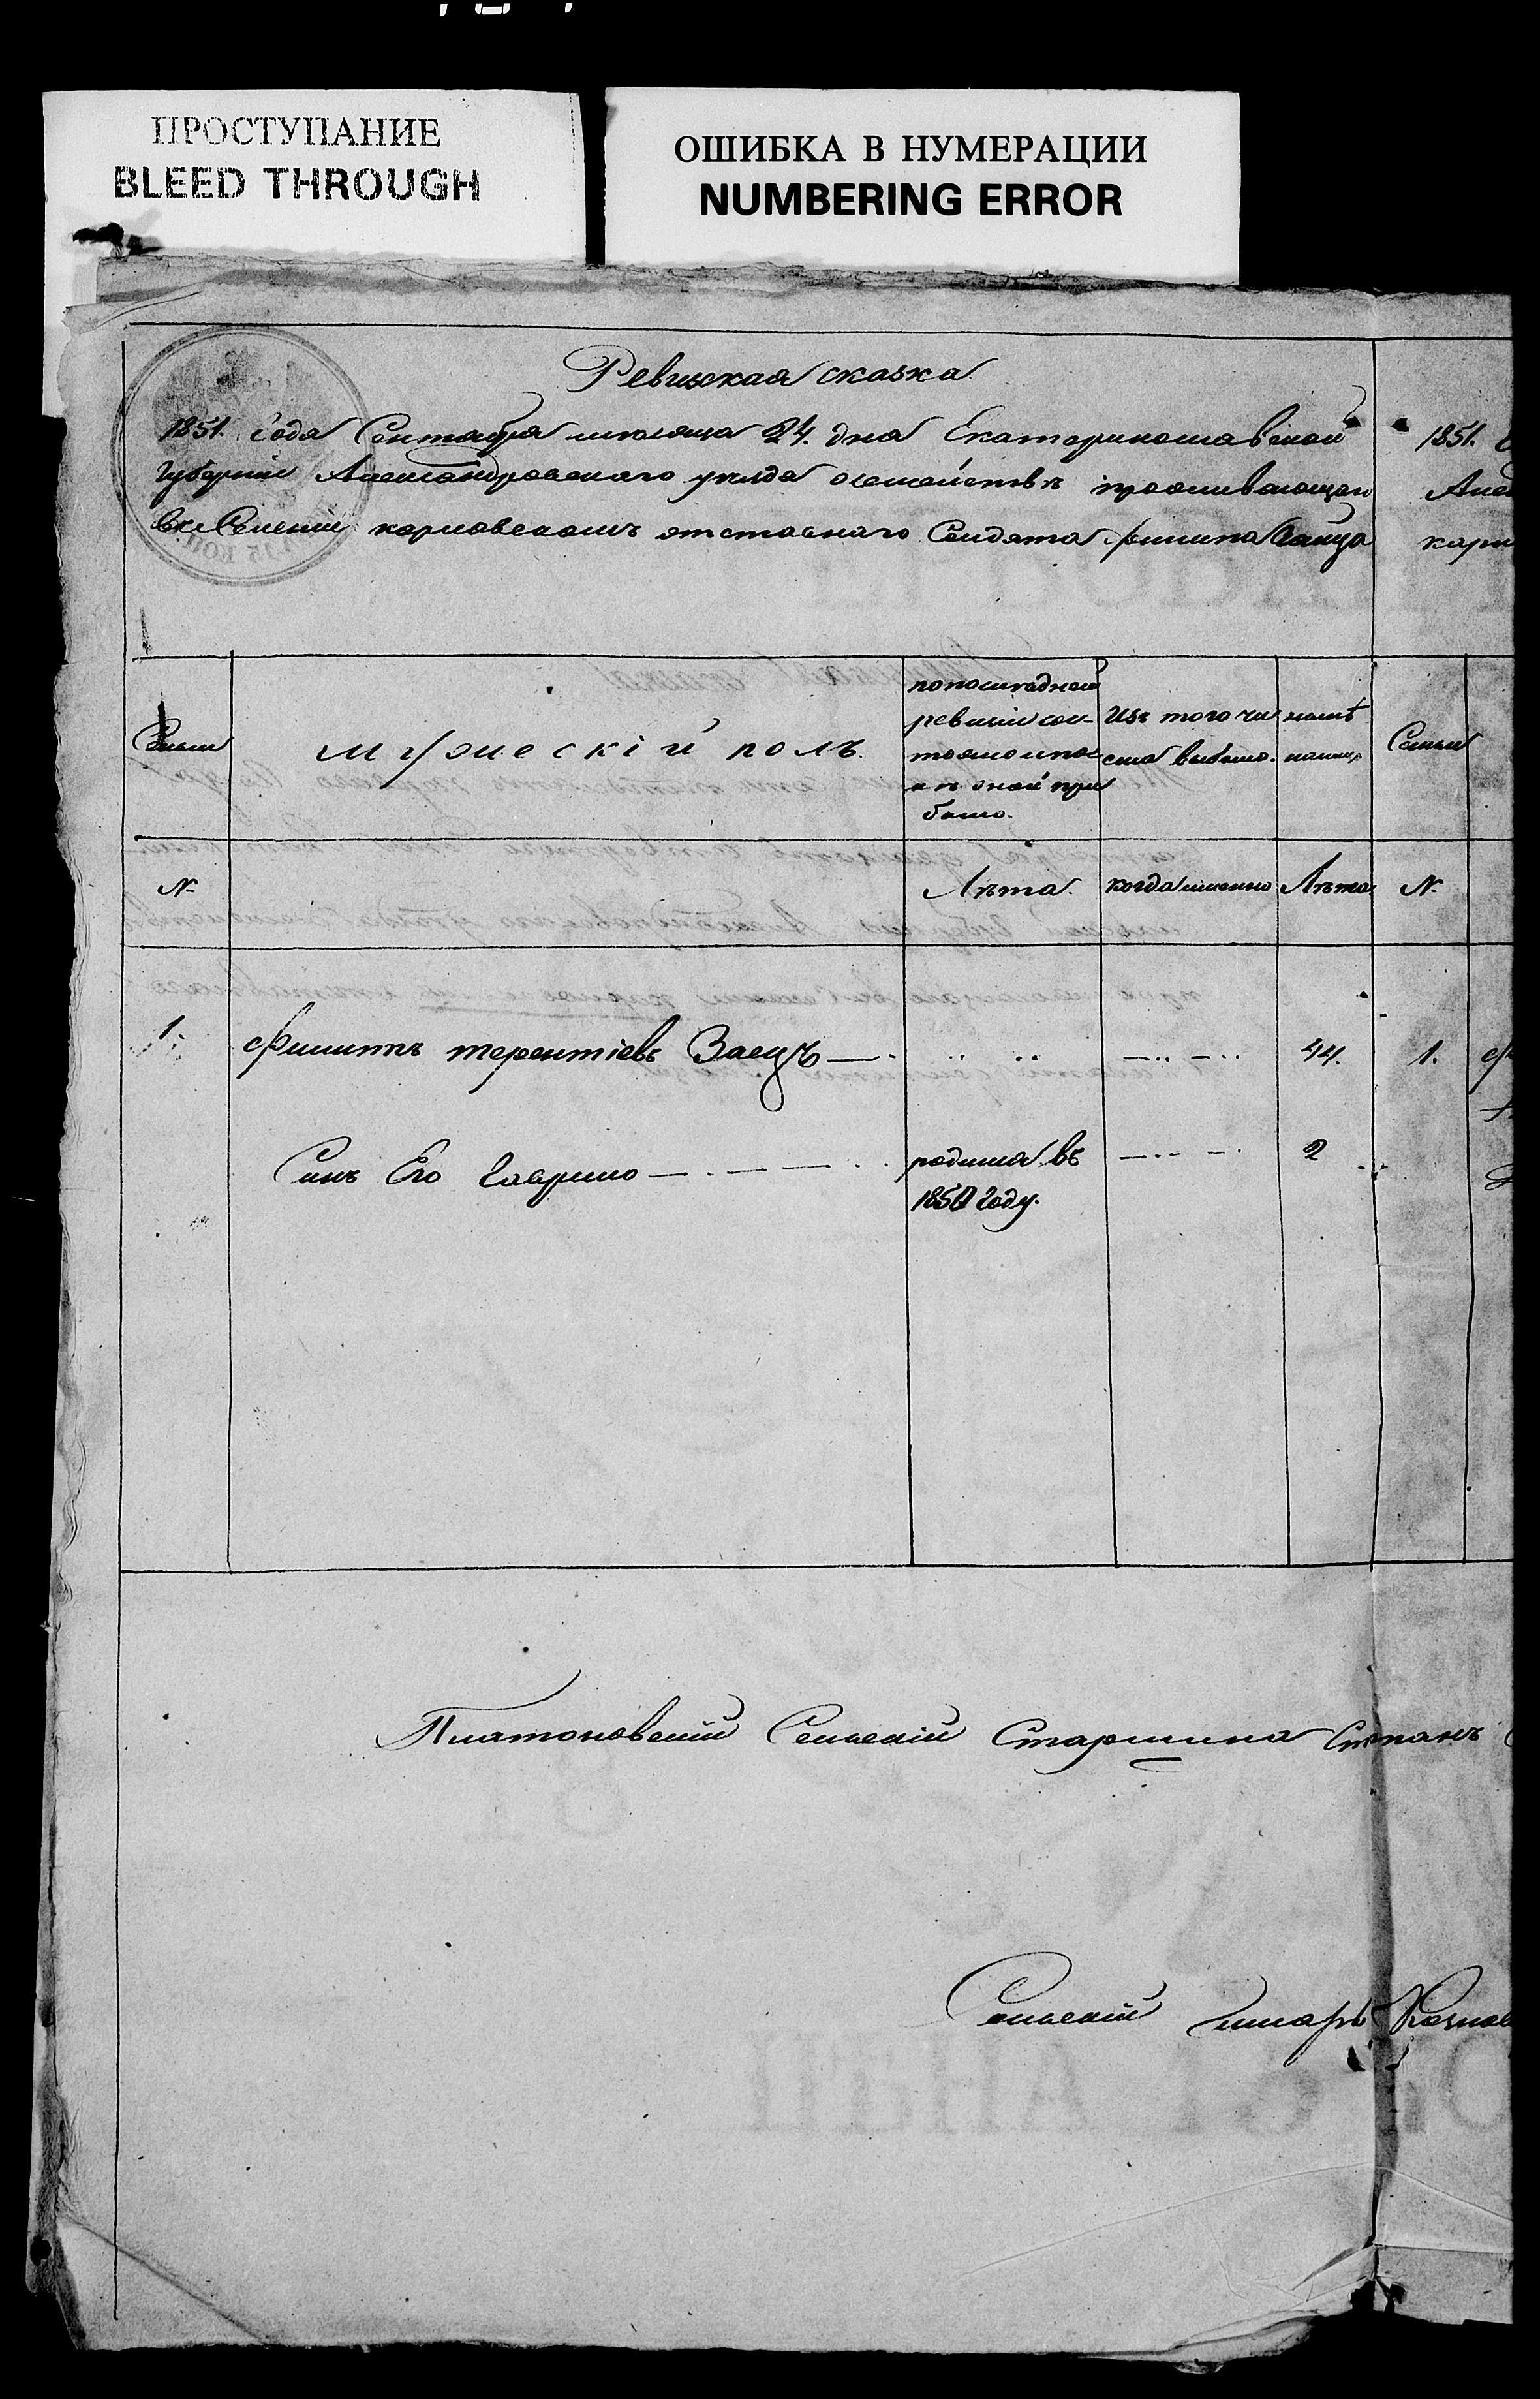 ПРОСТУПАНИЕ
BLEED THROUGH
ОШИБКА В НУМЕРАЦИИ
NUMBERING ERROR
Ревизская сказка
1851. Года Сентября месяца 24. дня Екатеринославской
Губернии Александровского уезда о семействѣ проживающаго
въ Селении карловскомъ отставнаго Солдата филипа Заица
Семьи
мужескій полъ.
по последней
ревизии сос-
тояло и пос-
лѣ оной при
было.
Изъ того чи
сла выбыло.
нынѣ
налицо
№
Лѣта.
когда именно
Лѣта
Семьи
№
1851.
1.
Филиппъ терентіевъ Заецъ
44.
1.
Синъ Его Гаврило
родился въ
1850 Году.
2
Платоновский Сельскій Старшина Степанъ
Сельский писарь